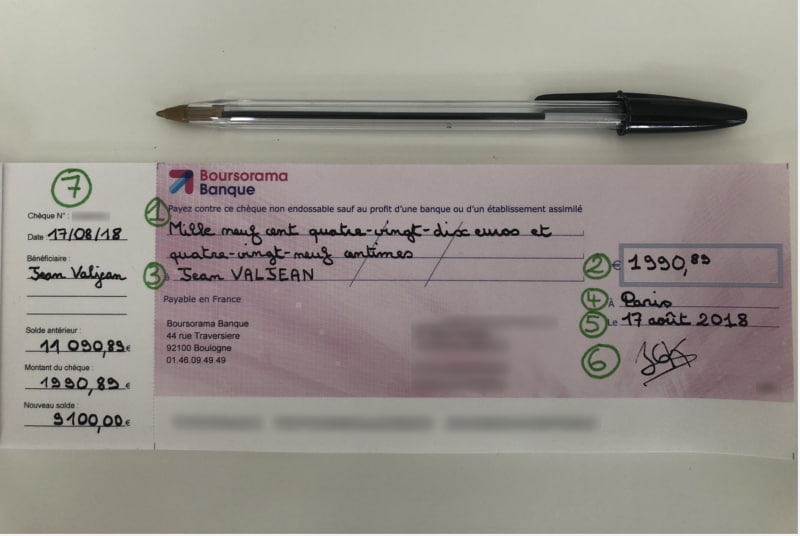 7
Chèque N° :
Date 17/08/18
Bénéficiaire :
Jean Valjean
Solde antérieur :
11 090,89€
Montant du chèque :
1990,89€
Nouveau solde :
9100,00€
Boursorama
Banque
1 Payez contre ce chèque non endossable sauf au profit d'une banque ou d'un établissement assimilé
Mille neuf cent quatre-vingt-dix euros et
quatre-vingt-neuf centimes
2 € 1990,89
3 Jean VALJEAN
Payable en France
4 À Paris
5 Le 17 août 2018
6
Boursorama Banque
44 rue Traversiere
92100 Boulogne
01.46.09.49.49